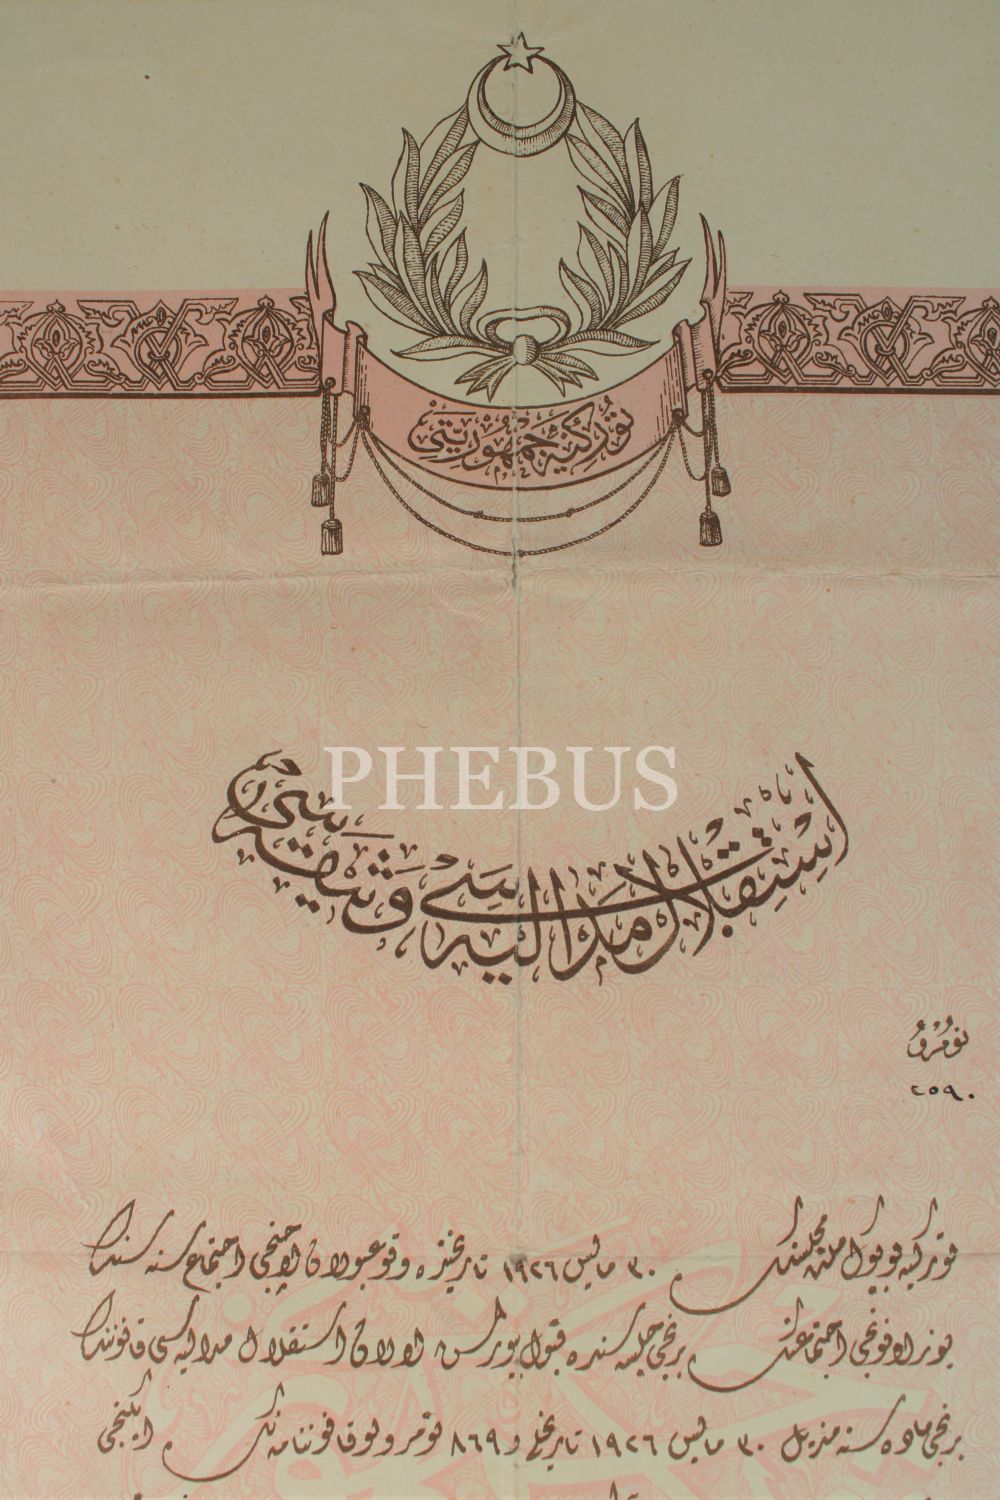 توركيه جمهوريتى
PHEBUS
استقلال مداليه سى وثيقه سيدر
نومرو
٢٥٩٠
توركيه بويوك ملت مجلسنك ٣٠ مايس ١٩٢٦ تاريخنده وقوعبولان ايكنجى اجتماع سنه سنك
يوز اون اوچنجى اجتماعنك برنجى جلسه سنده قبول بيورلمش اولان استقلال مداليه سى قانوننك
برنجى ماده سنه مذيل ٣٠ مايس ١٩٢٦ تاريخلى و ٨٦٩ نومرولو قانوننامه نك ايكنجى